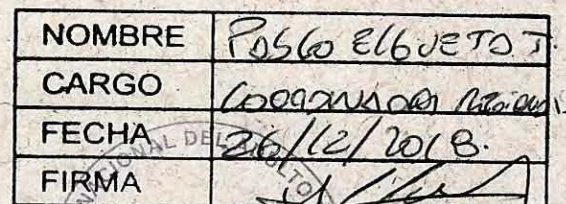 NOMBRE POSGO ElGUETA J.
CARGO COORDINADOR REGIONAL
FECHA 26/12/2018.
FIRMA
NACIONAL DEL ADULTO